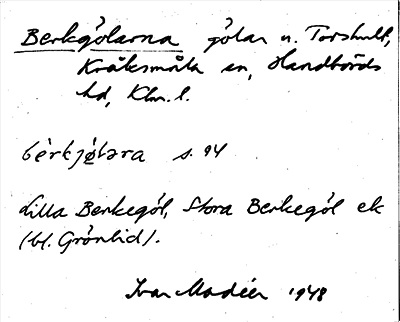 Berkgölarna gölar n. Torshult,
Kråksmåla sn, Handbörds
hd, Klm. l.
bèrkjø̀lara s. 94
Lilla Berkegöl, Stora Berkegöl ek
(bl. Grönlid).
Ivar Modéer 1948